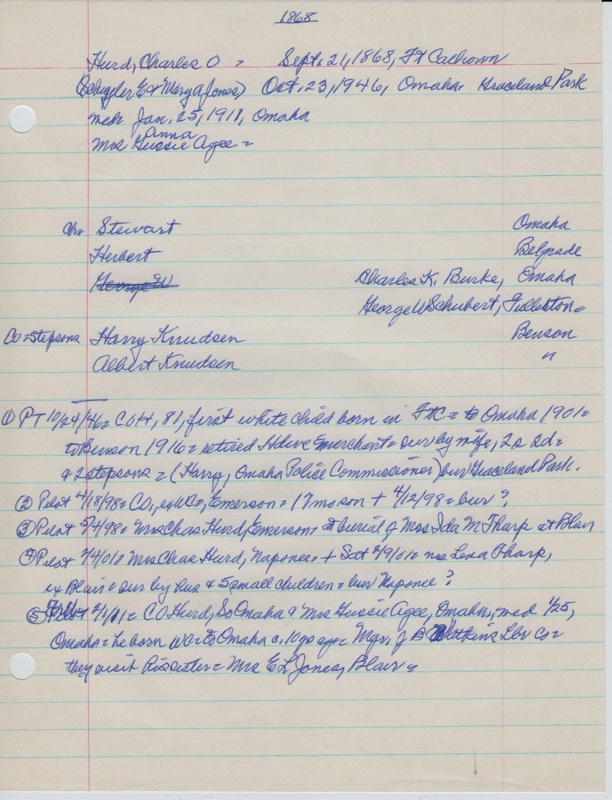 1868
Hurd, Charles O = Sept. 21, 1868, Ft Calhoun
(Schuyler E & Mary A Jones) Oct. 23, 1946, Omaha Graceland Park
md= Jan. 25, 1911, Omaha
Anna
Mrs Gussie Agee =
ch= Stewart Omaha
Herbert Belgrade
George W Charles K. Burke, Omaha
George W Schubert, Fullerton=
Co=stepsons Harry Knudsen Benson
Albert Knudsen "
① PT 10/24/46= COH, 81, first white child born in FtC= to Omaha 1901=
to Benson 1916= retired Hdwe merchant= sur by wife, 2s 2d=
& 2 stepsons= (Harry, Omaha Police Commissioner) bur Graceland Park.
② Pilot 4/18/98= CO, Emerson= 17 mo son + 4/12/98= bur?
③ Pilot 98= Mrs Chas Hurd, Emerson= at burial of Mrs Ida M Tharp at Blair
④ Pilot 4/01= Mrs Chas Hurd, Naponee= + Sat 9/01= nee Lena Tharp,
ex Blair= sur by hus & 5 small children= bur Naponee?
⑤ 1/11= CO Hurd, So Omaha & Mrs Gussie Agee, Omaha, med 1/25,
Omaha= he born WC= to Omaha c. 10 yo age= Mgr. of B Watkins Lbr Co=
they visit his sister= Mrs E L Jones, Blair=